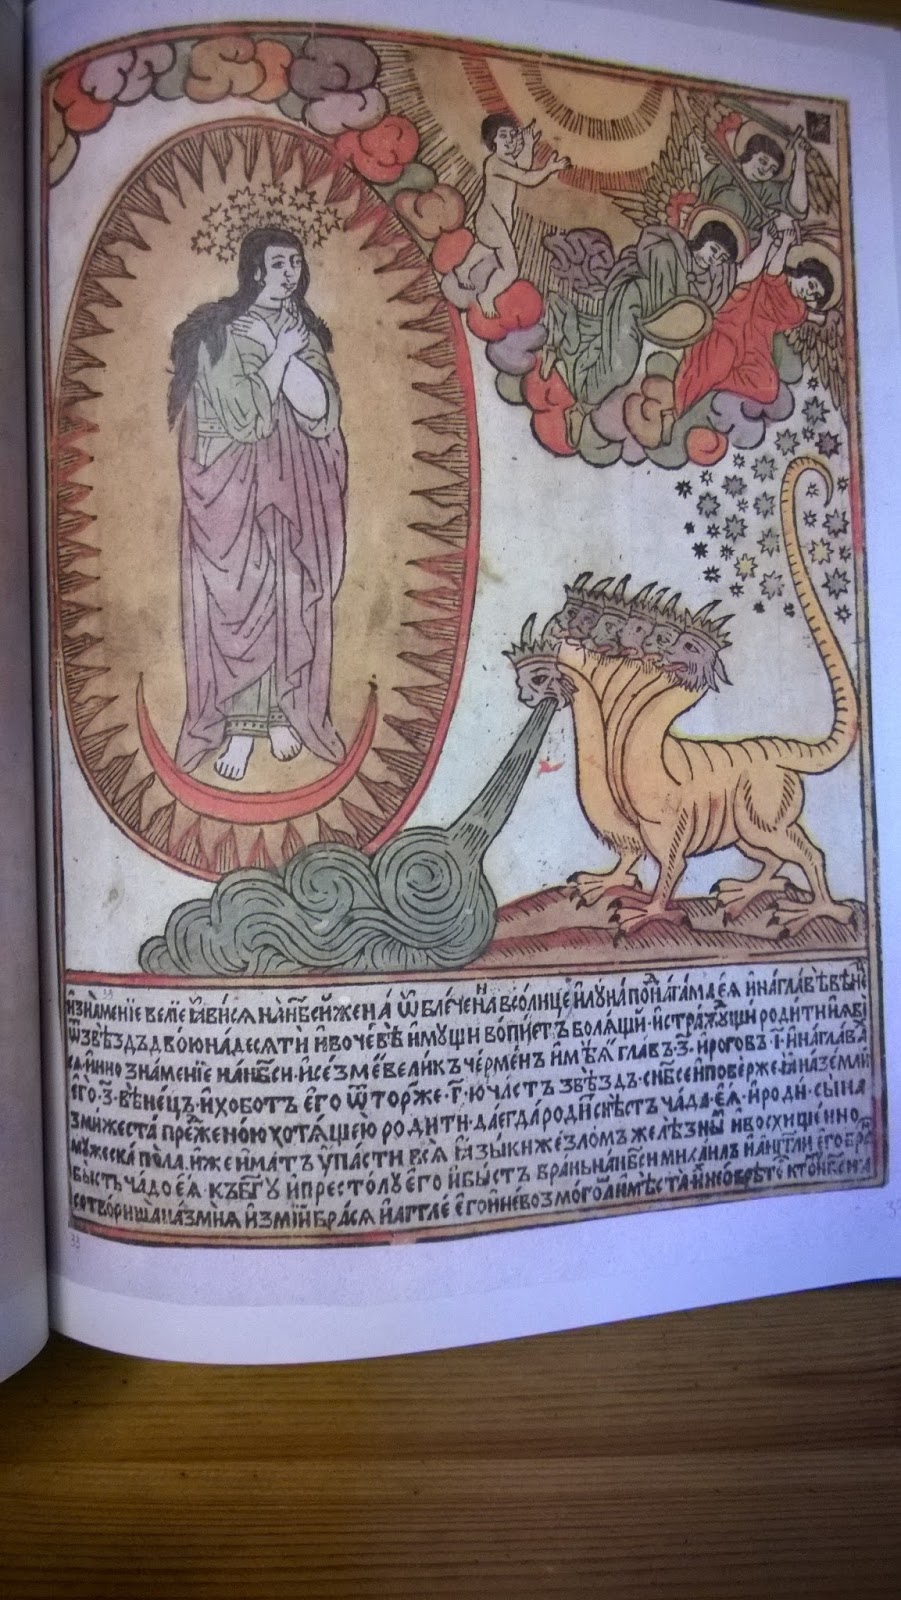 И҆ знамение велие ꙗ҆виса на нб҃си жена ѿблачена в солнце и҆ луна под нагама еѧ и҆ на главѣ вѣне
ѿ звѣздъ двоюнадесѧти и҆ во чревѣ и҆мущи вопиетъ болѧщи и҆ стражущи родити и҆ ꙗ҆ви
сѧ и҆но знамение на нб҃си и҆ се ѕмей великъ чермен и҆мѣѧ главъ ·з҃· и҆ рогов ·і҃· и҆ на глава
е҆го ·з҃· вѣнецъ и҆ хоботъ е҆го ѿторже ·г҃·ю часть звѣздъ с нб҃се и҆ поверже на землю
ѕми жеста пре женою хотѧщею родити да егда родит снѣстъ чада еѧ и҆ роди сына
мужеска пола и҆же и҆матъ у҆пасти всѧ ꙗ҆зыки жезломъ желѣзны и҆ восхищенно
бысть чадо еѧ къ бг҃у и҆ престолу е҆го и҆ бысть брань на нб҃си михаилъ и҆ а҆нг҃ли е҆го бра
сотвориша на змиѧ и҆ змий брасѧ и҆ а҆гг҃ле е҆го и҆ не возмогоша и҆ мѣста и҆ не обрѣте кто нб҃си
33